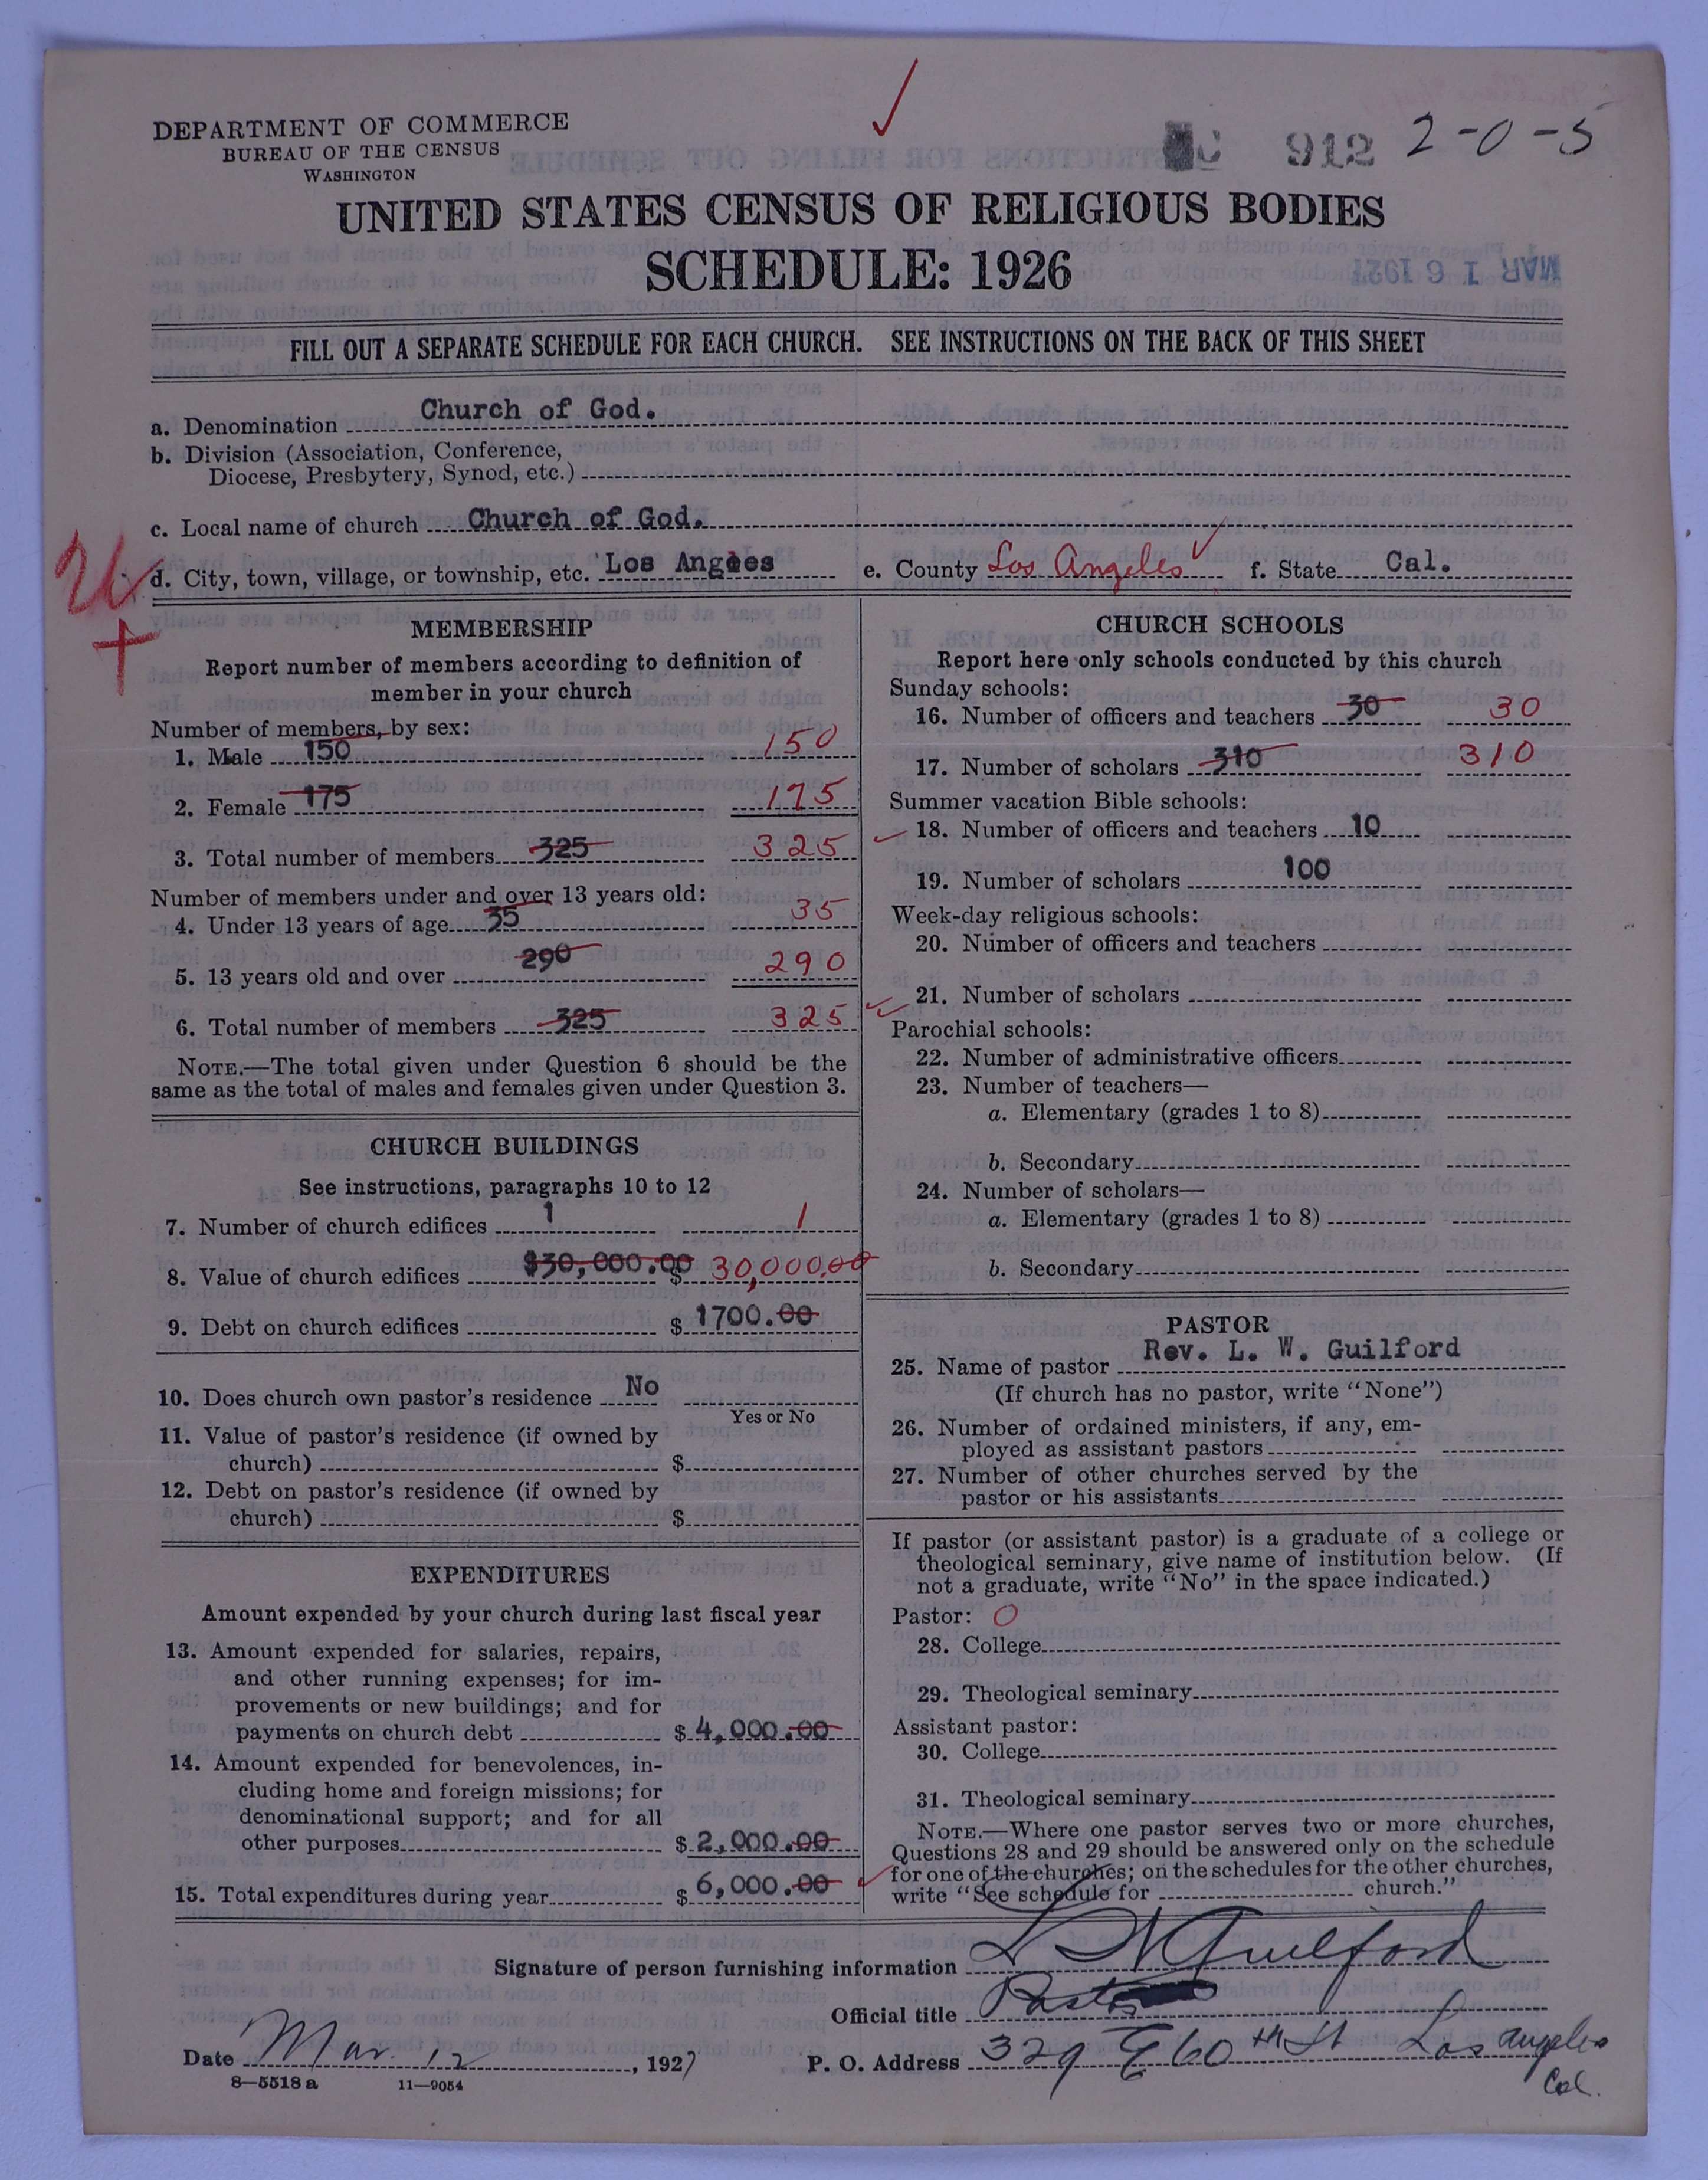 DEPARTMENT OF COMMERCE
BUREAU OF THE CENSUS
WASHINGTON
C 912 2-0-5
UNITED STATES CENSUS OF RELIGIOUS BODIES
SCHEDULE: 1926
MAR 16 1927
FILL OUT A SEPARATE SCHEDULE FOR EACH CHURCH. SEE INSTRUCTIONS ON THE BACK OF THIS SHEET
a. Denomination Church of God.
b. Division (Association, Conference,
Diocese, Presbytery, Synod, etc.)
c. Local name of church Church of God.
d. City, town, village, or township, etc. Los Angeles e. County Los Angeles f. State Cal.
MEMBERSHIP
Report number of members according to definition of
member in your church
Number of members, by sex:
1. Male 150 150
2. Female 175 175
3. Total number of members 325 325
Number of members under and over 13 years old:
4. Under 13 years of age 35 35
5. 13 years old and over 290 290
6. Total number of members 325 325
NOTE.—The total given under Question 6 should be the
same as the total of males and females given under Question 3.
CHURCH BUILDINGS
See instructions, paragraphs 10 to 12
7. Number of church edifices 1 1
8. Value of church edifices $30,000.00 $ 30,000.00
9. Debt on church edifices $ 1700.00
10. Does church own pastor's residence No
Yes or No
11. Value of pastor's residence (if owned by
church) $
12. Debt on pastor's residence (if owned by
church) $
EXPENDITURES
Amount expended by your church during last fiscal year
13. Amount expended for salaries, repairs,
and other running expenses; for im-
provements or new buildings; and for
payments on church debt $ 4,000.00
14. Amount expended for benevolences, in-
cluding home and foreign missions; for
denominational support; and for all
other purposes $ 2,000.00
15. Total expenditures during year $ 6,000.00
CHURCH SCHOOLS
Report here only schools conducted by this church
Sunday schools:
16. Number of officers and teachers 30 30
17. Number of scholars 310 310
Summer vacation Bible schools:
18. Number of officers and teachers 10
19. Number of scholars 100
Week-day religious schools:
20. Number of officers and teachers
21. Number of scholars
Parochial schools:
22. Number of administrative officers
23. Number of teachers—
a. Elementary (grades 1 to 8)
b. Secondary
24. Number of scholars—
a. Elementary (grades 1 to 8)
b. Secondary
PASTOR
25. Name of pastor Rev. L. W. Guilford
(If church has no pastor, write "None")
26. Number of ordained ministers, if any, em-
ployed as assistant pastors
27. Number of other churches served by the
pastor or his assistants
If pastor (or assistant pastor) is a graduate of a college or
theological seminary, give name of institution below. (If
not a graduate, write "No" in the space indicated.)
Pastor: O
28. College
29. Theological seminary
Assistant pastor:
30. College
31. Theological seminary
NOTE.—Where one pastor serves two or more churches,
Questions 28 and 29 should be answered only on the schedule
for one of the churches; on the schedules for the other churches,
write "See schedule for church."
Signature of person furnishing information L W Guilford
Official title Pastor
Date Mar. 12, 1927 P. O. Address 329 E 60th St Los Angeles
Cal.
8—5518 a 11—9054